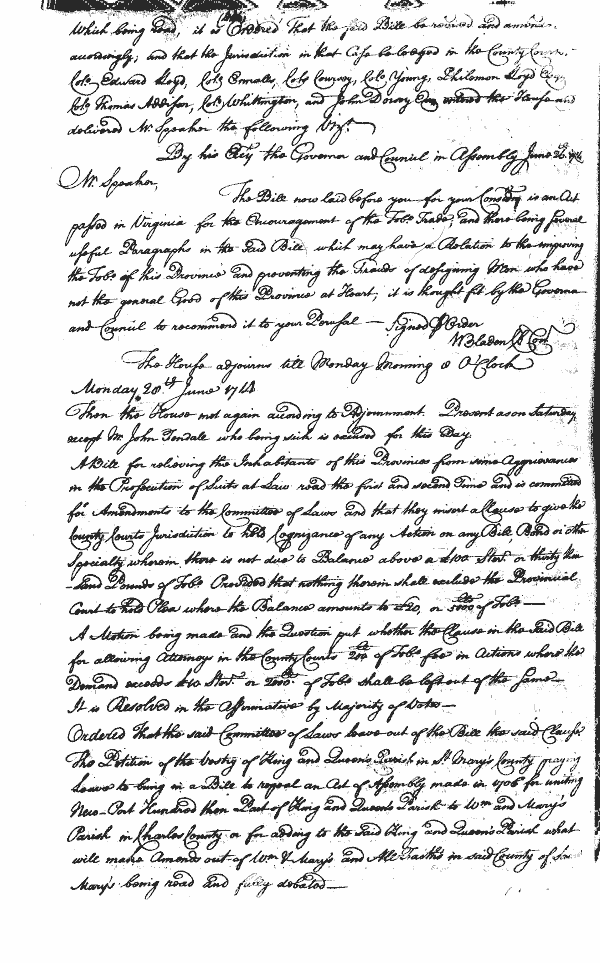 which being read, it is Ordered That the said Bill be revised and amend
accordingly; and that the Jurisdiction in that Case be lodged in the County Courts.
Colo. Edward Lloyd, Colo. Ennalls, Colo. Coursey, Colo. Young, Philemon Lloyd Esqr.
Colo. Thomas Addison, Colo. Whittington, and John Dorsey Esq entered the House and
delivered Mr. Speaker the following Vizt.
By his Excy. the Governor and Council in Assembly June 26th
Mr. Speaker,
The Bill now laid before you for your is an Act
passed in Virginia for the Encouragement of the Tobo. Trade, and there being several
useful Paragraphs in the said Bill which may have a Relation to the improving
the Tobo. of this Province and preventing the Frauds of designing Men who have
not the general Good of this Province at Heart; it is thought fit by the Governr
and Council to recommend it to your Perusal — Signed p Order
W Bladen Cl Con
The House adjourns till Monday Morning 8 O'Clock
Monday 28th June 1714
Then the House met again according to Adjournment. Present as on Saturday
except Mr. John Tendale who being sick is excused for this Day.
A Bill for relieving the Inhabitants of this Province from some Aggrievances
in the Prosecution of Suits at Law read the first and second Time and is committed
for Amendments to the Committee of Laws and that they insert a Clause to give the
County Courts Jurisdiction to hold Cognizance of any Action on any Bill, Bond or other
Specialty wherein there is not due to Balance above a £100 Ster. or thirty thou
-sand Pounds of Tobo. Provided that nothing therein shall exclude the Provincial
Court to hold Plea where the Balance amounts to £20, or 5000 of Tobo —
A Motion being made and the Question put whether the Clause in the said Bill
for allowing Attorneys in the County Courts of Tobo. fee in Actions where the
Demand exceeds £10 Ster. or 2000 of Tobo. shall be left out of the same —
It is Resolved in the Affirmative by Majority of Votes —
Ordered That the said Committee of Laws leave out of the Bill the said Clause.
The Petition of the Vestry of King and Queen's Parish in St. Mary's County praying
Leave to bring in a Bill to repeal an Act of Assembly made in 1706 for uniting
New-Port Hundred then Part of King and Queen's Parish to Wm and Mary's
Parish in Charles County or for adding to the said King and Queen's Parish what
will make Amends out of Wm & Mary's and All Faith's in said County of
Mary's being read and fully debated —